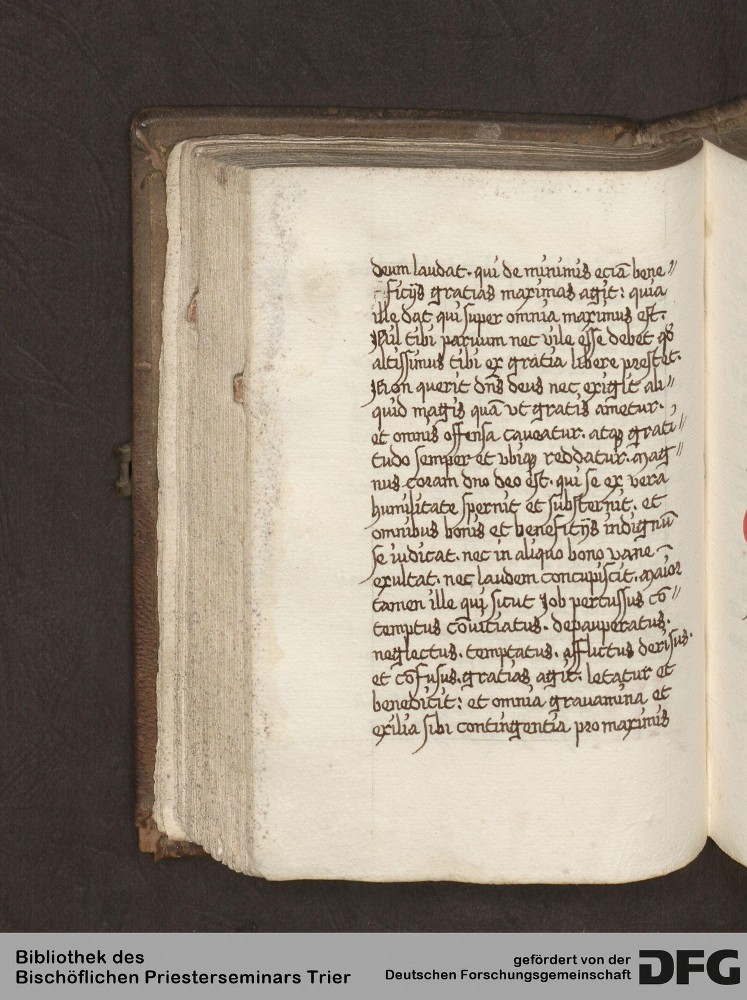 deum laudat. qui de minimis eciā bene〃
ficijs gratias maximas agit: quia
ille dat qui super omnia maximus est.
Nil tibi paruum nec vile esse debet qđ
altissimus tibi ex gratia libere prestet.
Non querit dn̄s deus nec exigit ali〃
quid magis quā vt gratis ametur.
et omnis offensa caueatur. atqꝫ grati〃
tudo semper et vbiqꝫ reddatur. Mag〃
nus coram dno deo est. qui se ex vera
humilitate spernit et substernit. et
omnibus bonis et benefitijs indignū
se iudicat. nec in aliquo bono vane
exultat. nec laudem concupiscit. Maior
tamen ille qui sicut Job percussus cō〃
temptus cōuitiatus. depauperatus.
neglectus. temptatus. afflictus derisus.
et cōfusus. gratias agit. letatur et
benedicit: et omnia grauamina et
exilia sibi contingentia pro maximis
Bibliothek des
Bischöflichen Priesterseminars Trier
gefördert von der
Deutschen Forschungsgemeinschaft
DFG